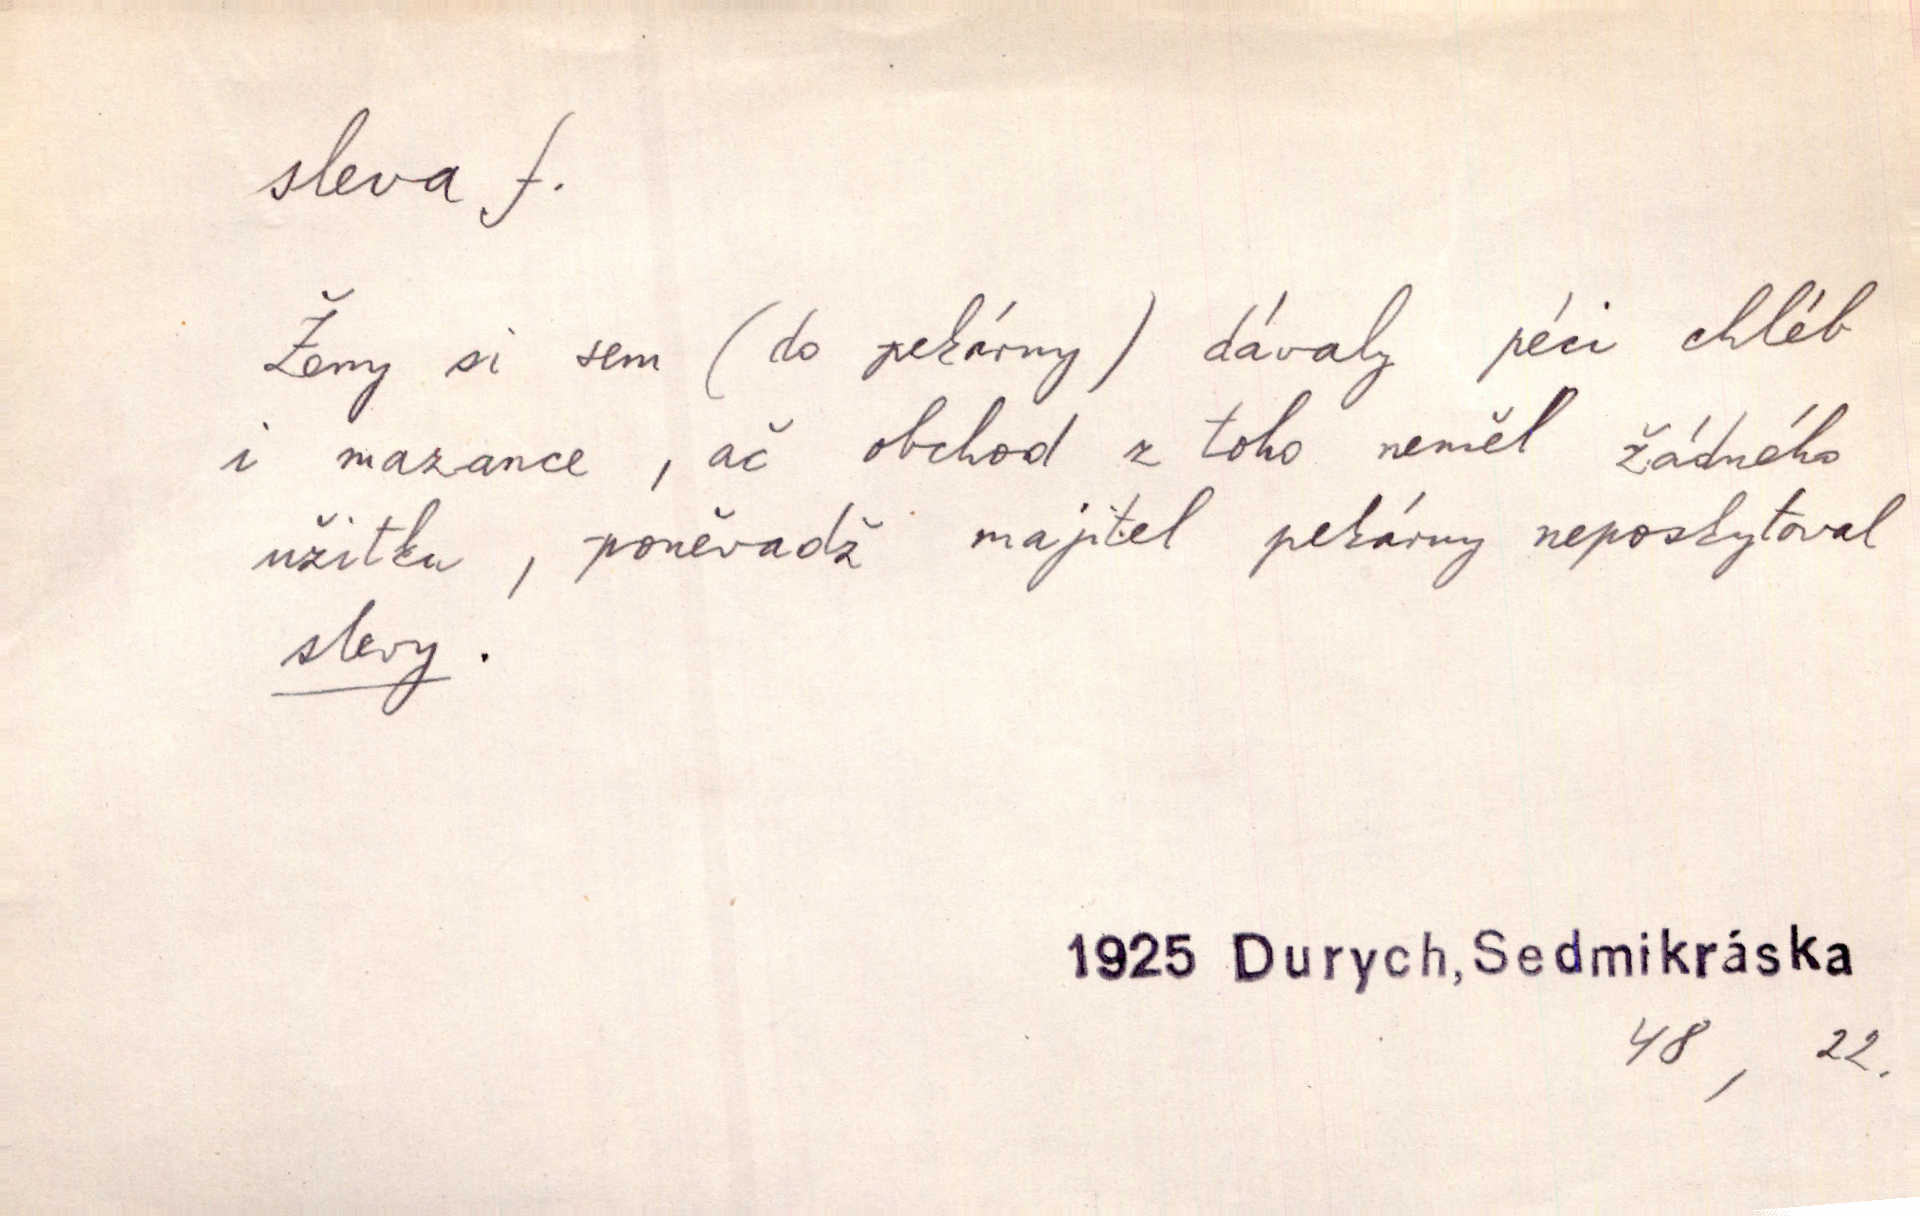 sleva f.
Ženy si sem (do pekárny) dávaly péci chléb
i mazance, ač obchod z toho neměl žádného
užitku, poněvadž majitel pekárny neposkytoval
slevy.
1925 Durych, Sedmikráska
48, 22.